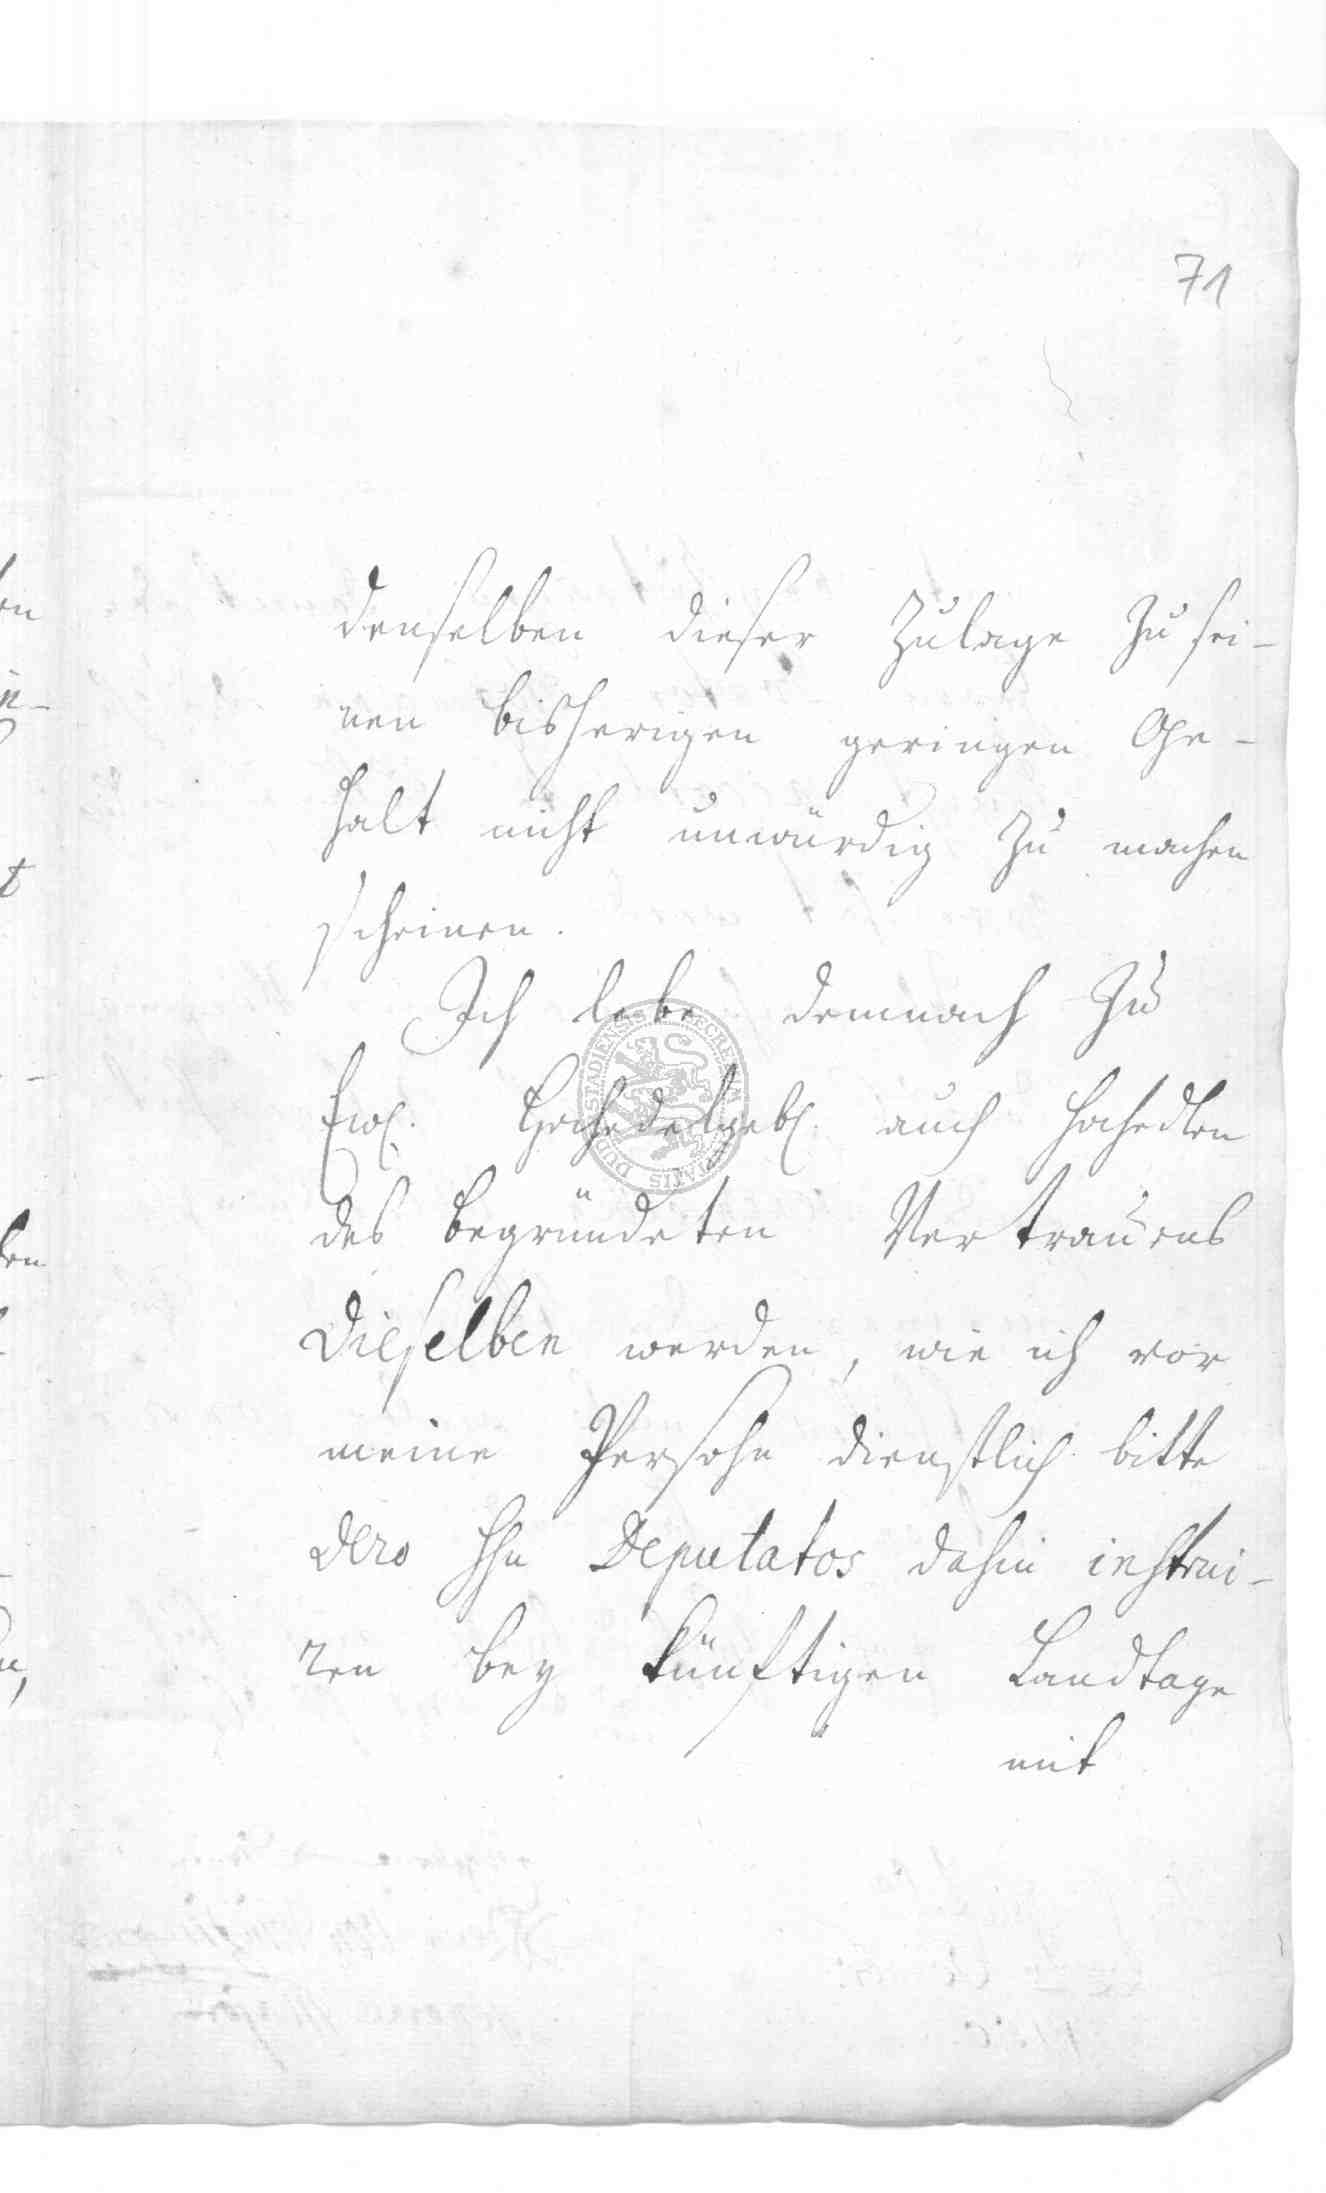 71
denselben dieser Zulage zu sei-
nen bisherigen geringen Ge-
halt nicht unwürdig zu machen
scheinen.
Ich lebe demnach zu
Ew. Hochedelgeb. auch Hochedlen
des begründeten Vertrauens
Dieselben werden, wie ich vor
meine Persohn dienstlich bitte
dero HHn Deputatos dahin instrui-
ren bey künftigen Landtage
mit